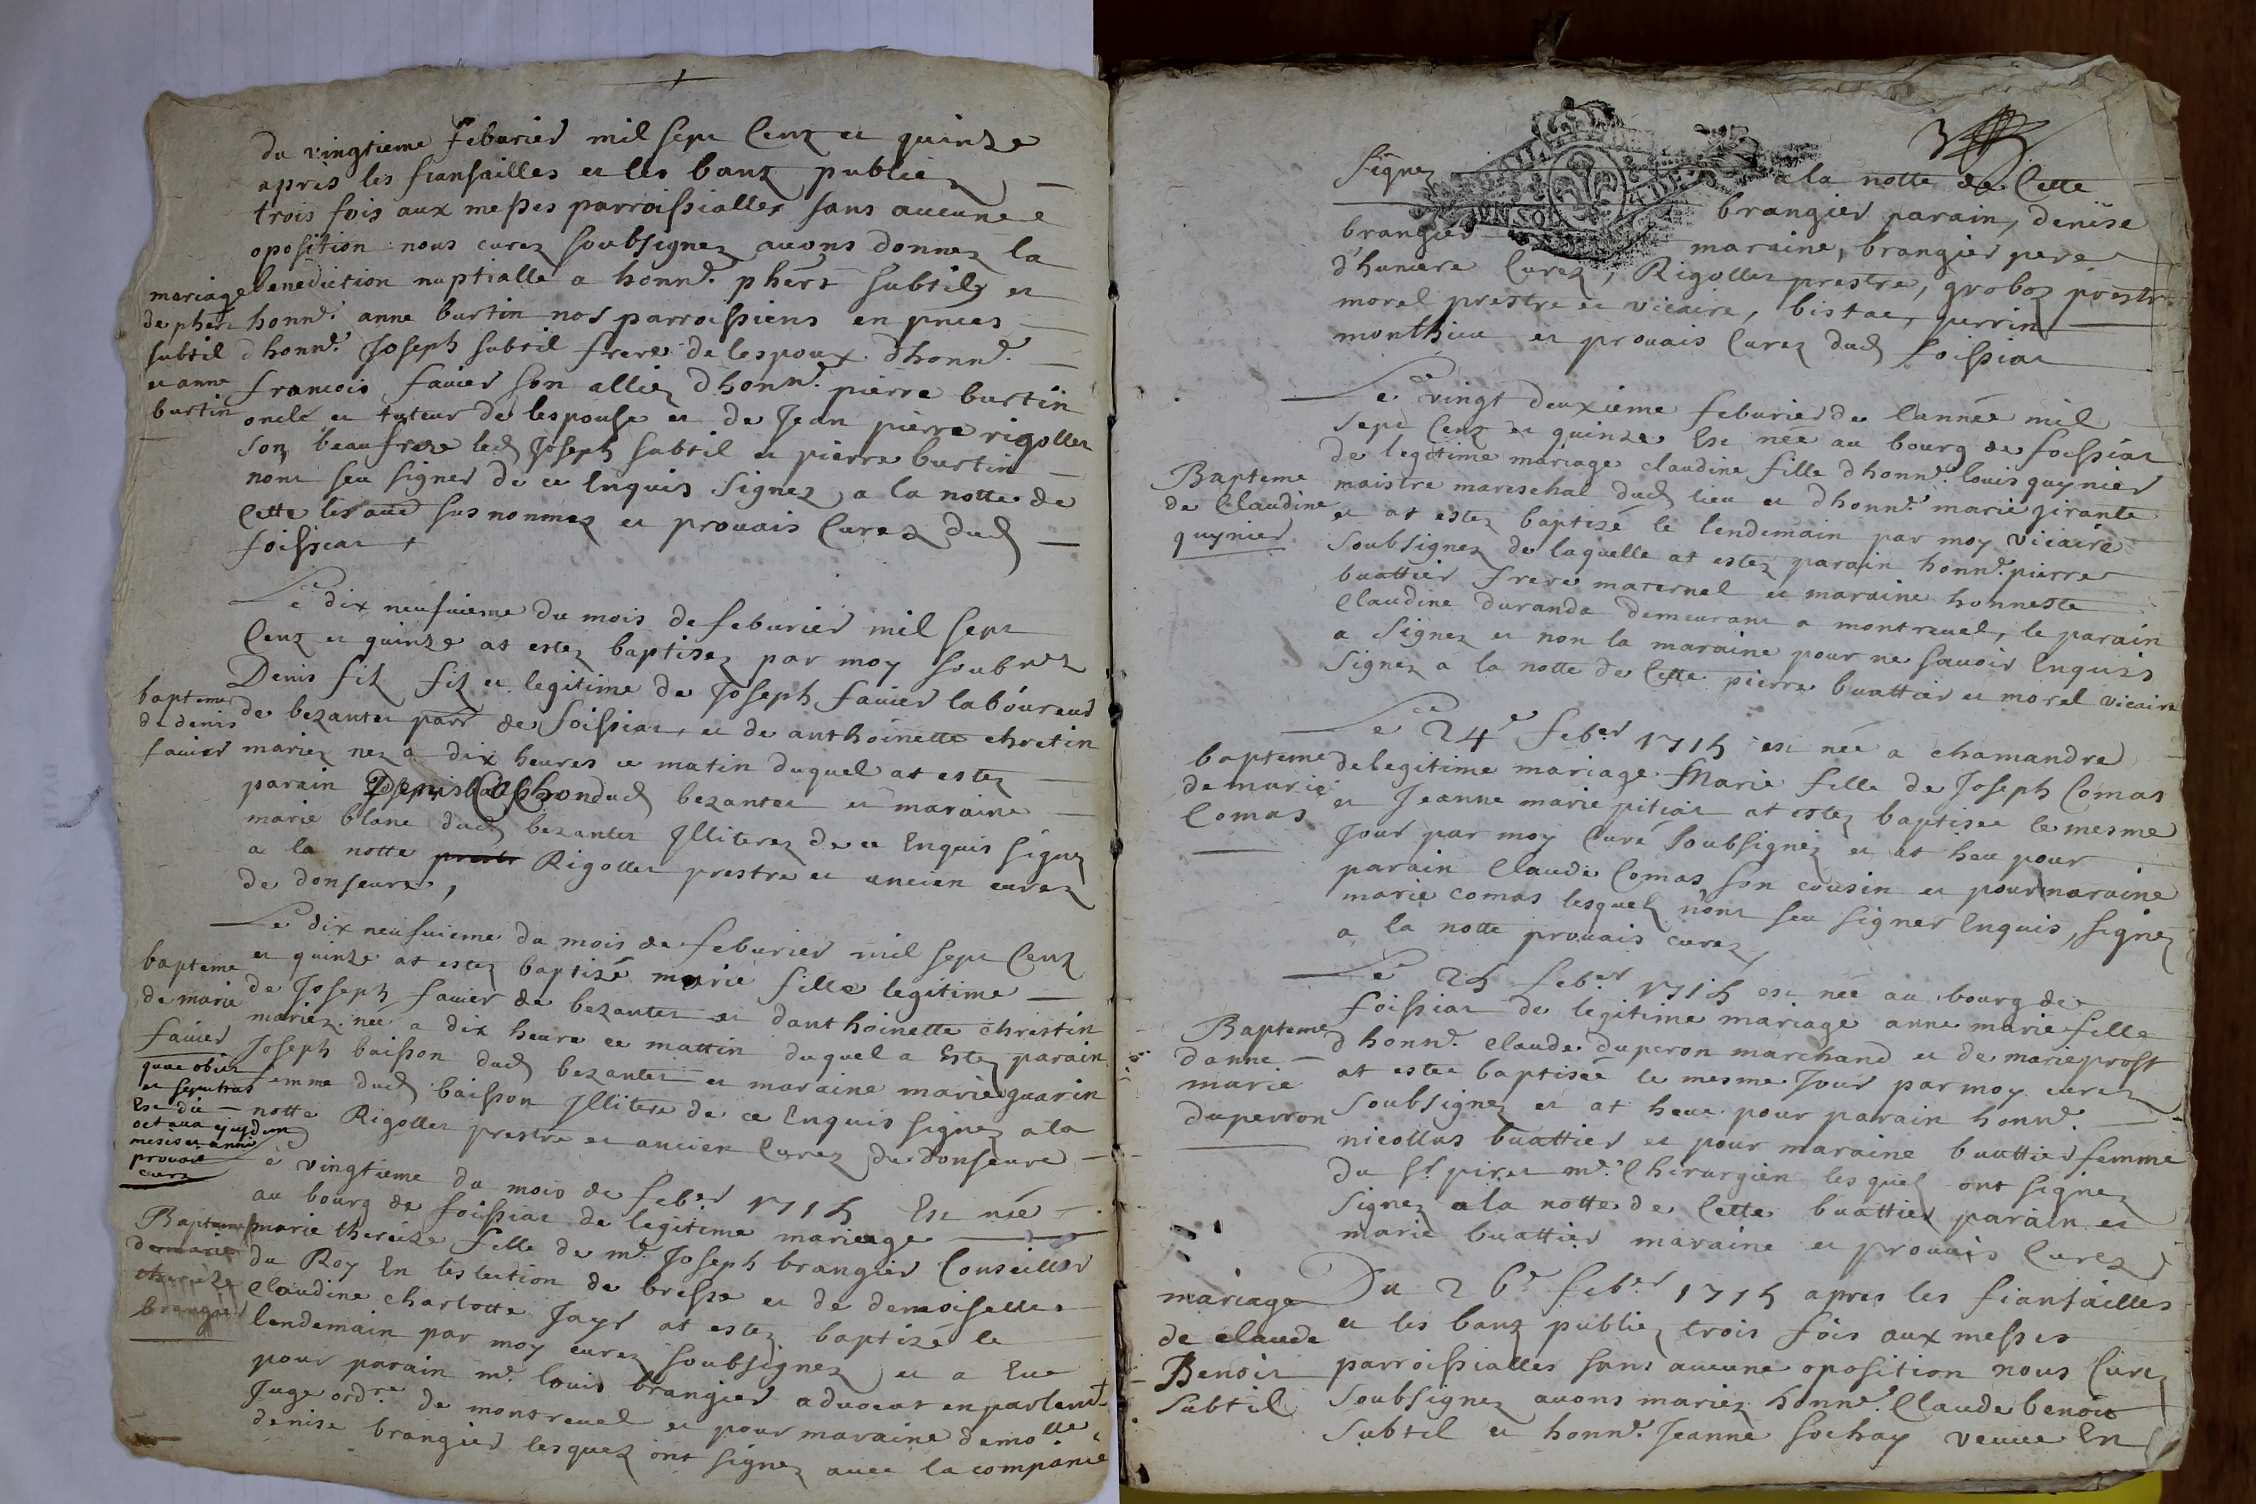 du vingtieme feburier mil sept Cenz et quinze
apres les fiansailles et les banz publiez
trois fois aux messes parroissialles sans aucune
oposition nous curez soubsignez avons donnez la
benediction nuptialle a honn.e phert subtil et
honn.e anne burtin nos parroissiens en pnces
d honn.e Joseph subtil frere de lespoux d honn.e
francois favier son alliez d honn.e pierre burtin
oncle et tuteur de lespouse et de Jean pierre rigollet
son beaufrere led Joseph subtil et pierre burtin
nont seu signer de ce Enquis signez a la notte de
Cette les susnommez et provais Curez dud
foissiat
mariage
de phert
subtil
et anne
burtin
Le dix neufvieme du mois de feburier mil sept
Cenz et quinze at estez baptisez par moy soubnez
Denis filz filz et legitime de Joseph favier laboureur
de bezantet parr de foissiat, et de anthoinette chretin
mariez nez a dix heures ce matin duquel at estez
parain Denis dud bezantet et maraine
marie blanc dud bezantet Jlliterez de ce Enquis signez
a la notte Rigollet prestre et ancien curez
de donseure,
bapteme
de denis
favier
Le dix neufvieme du mois de feburier mil sept Cenz
et quinze at estez baptizé marie fille legitime
de Joseph favier de bezantet et danthoinette chrestin
mariez née a dix heure ce mattin duquel a Estez parain
Joseph baisson dud bezantet et maraine marie guarin
femme dud baisson Jllitere de ce Enquis signez a la
notte Rigollet prestre et ancien Curez de donseure
bapteme
de marie
favier
quae obiit
et sepultas
Est die
octava ejusdem
mesis et anni
provais
curé
Le vingtieme du mois de feber 1715 Est née
au bourg de foissiat de legitime mariage
marie thereize fille de mr. Joseph brangier Conseiller
du Roy En leslection de bresse et de demoiselle
Claudine charlotte Jayr at estez baptizé le
lendemain par moy curez soubsignez et a Eue
pour parain mr. louis brangier advocat en parlemt
Juge ordre de montrevel et pour maraine demolle
denise brangier lesquez ont signez avec la companie
Bapteme
de marie
thereize
brangier
3
Signez a la notte de Cette
brangier brangier parain, denise
maraine, brangier pere
d'humere Curez, Rigollet prestre, groboz prestre
morel prestre et vicaire, bistac, perrin
monthieu et provais Curez dud foissiat
Le vingt deuxieme feburier de l'année mil
sept Cenz et quinze Est née au bourg de foissiat
de legitime mariage claudine fille d honn.e louis guynier
maistre mareschal dud lieu et d honn.e marie girante
et at estez baptizé le lendemain par moy vicaire
soubsignez de laquelle at estez parain honn.e pierre
buattier frere maternel et maraine honneste
Claudine duranda demeurant a montrevel, le parain
a signez et non la maraine pour ne savoir Enquis
signez a la notte de Cette pierre buattier et morel vicaire
Bapteme
de Claudine
guynier
Le 24e feber 1715 est née a chamandre
de legitime mariage Marie fille de Joseph Comas
et Jeanne marie pitiat at estez baptisee le mesme
Jour par moy Curé soubsignez et at heu pour
parain Claude Comas son cousin et pour maraine
marie comas lesquelz nont seu signer Enquis, signez
a la notte provais curez
bapteme
de marie
Comas
Le 25 feber 1715 est née au bourg de
foissiat de legitime mariage anne marie fille
d honn.e claude duperon marchand et de marie prost
at estee baptisée le mesme Jour par moy curez
soubsignez et at heue pour parain honn.e
nicollas buattier et pour maraine buattier femme
du sr. piret mr. Chirurgien lesquelz ont signez
signez a la notte de Cette buattier parain et
marie buattier maraine et provais Curez
Bapteme
danne
marie
duperron
Du 26e feber 1715 apres les fiansailles
et les banz publiez trois fois aux messes
parroissialles sans aucune oposition nous Curez
soubsignez avons mariez honn.e Claude benoit
subtil et honn.e Jeanne sochay veuve En
mariage
de claude
Benoit
subtil